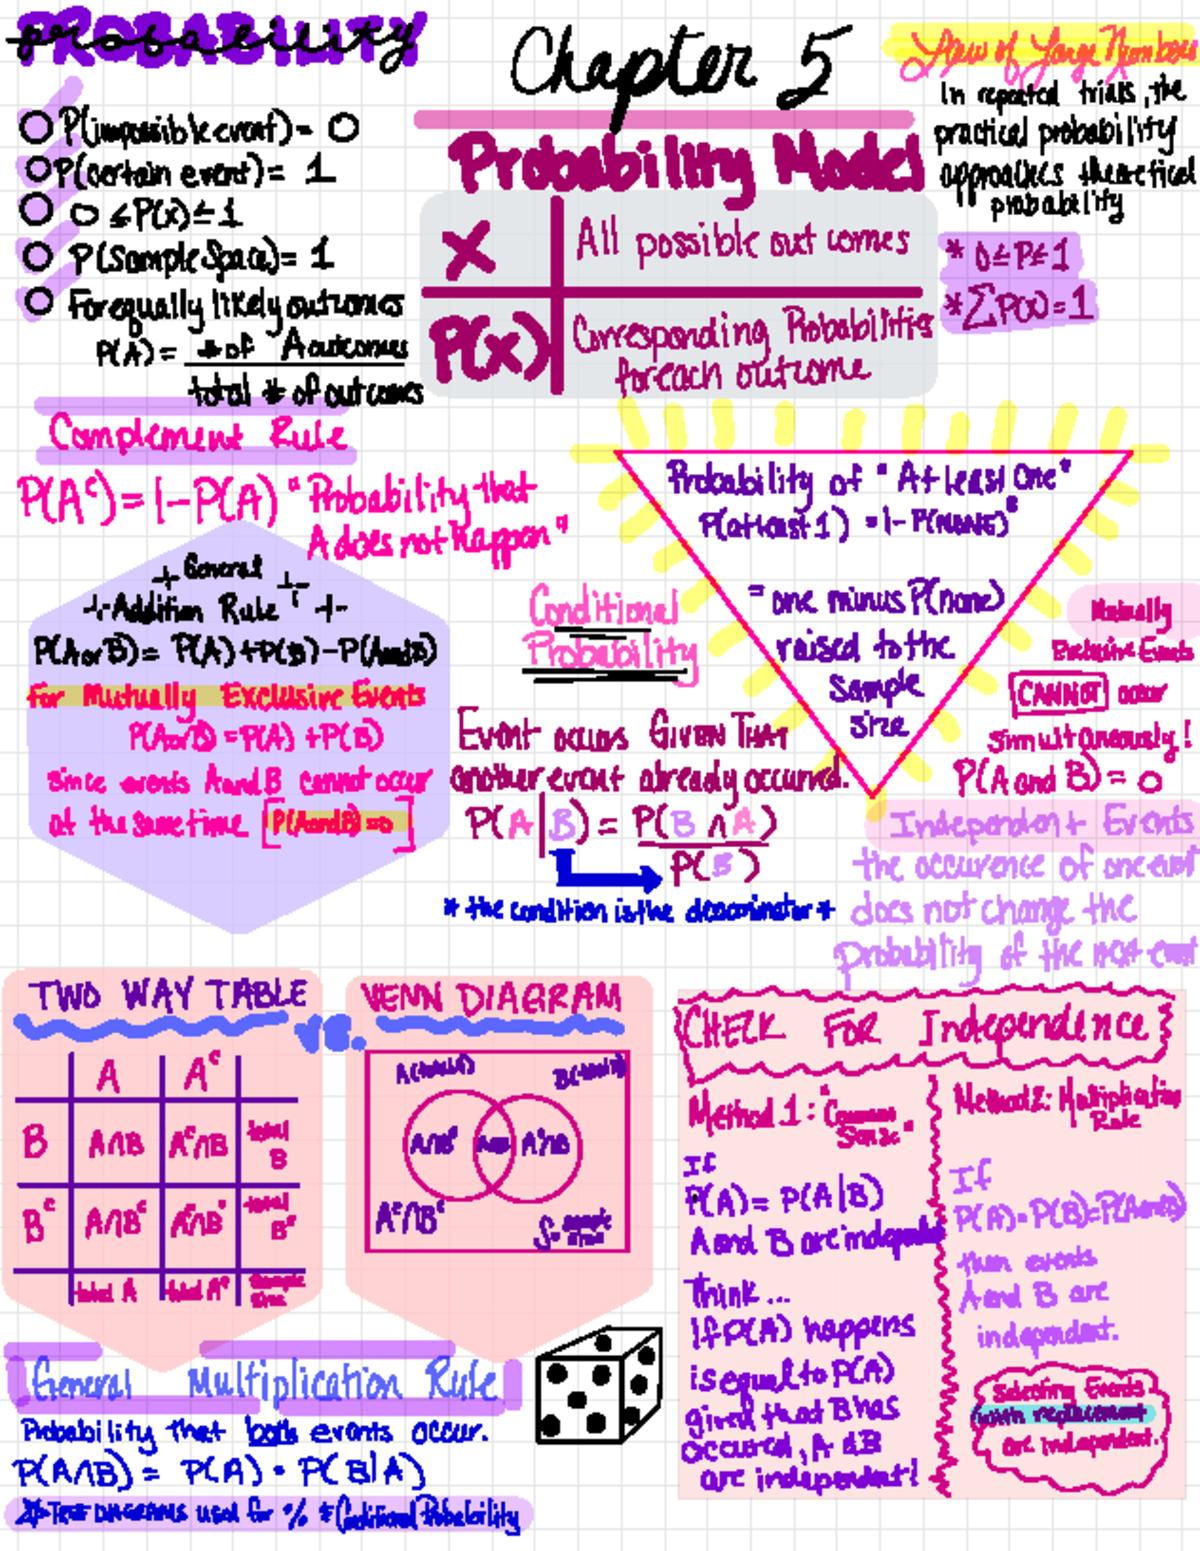 PROBABILITY
probability
P(impossible event) = 0
P(certain event) = 1
0 ≤ P(x) ≤ 1
P(Sample Space) = 1
For equally likely outcomes
P(A) = # of A outcomes
total # of outcomes
Chapter 5
Probability Model
X
All possible outcomes
P(x)
Corresponding Probabilities
for each outcome
Law of Large Numbers
In repeated trials, the
practical probability
approaches theoretical
probability
* 0 ≤ P ≤ 1
* ∑P(x) = 1
Complement Rule
P(Aᶜ) = 1 - P(A) "Probability that
A does not happen"
General
Addition Rule
P(A or B) = P(A) + P(B) - P(A and B)
For Mutually Exclusive Events
P(A or B) = P(A) + P(B)
since events A and B cannot occur
at the same time [P(A and B) = 0]
Probability of "At least One"
P(at least 1) = 1 - P(none)ⁿ
= one minus P(none)
raised to the
sample
size
Conditional
Probability
Event occurs GIVEN THAT
another event already occurred.
P(A|B) = P(B ∩ A)
P(B)
* the condition is the denominator *
Mutually
Exclusive Events
CANNOT occur
simultaneously!
P(A and B) = 0
Independent Events
the occurence of one event
does not change the
probability of the next event
TWO WAY TABLE
VS.
VENN DIAGRAM
A Aᶜ
B A∩B Aᶜ∩B total B
Bᶜ A∩Bᶜ Aᶜ∩Bᶜ total Bᶜ
total A total Aᶜ Sample Size
A(total) B(total)
A∩Bᶜ A∩B Aᶜ∩B
Aᶜ∩Bᶜ
S = sample
CHECK FOR Independence
Method 1: "Common
Sense"
If
P(A) = P(A|B)
A and B are independent
Think...
If P(A) happens
is equal to P(A)
given that B has
occured, A & B
are independent!
Method 2: Multiplication
Rule
If
P(A) • P(B) = P(A and B)
then events
A and B are
independent.
Selecting Events
with replacement
are independent.
General Multiplication Rule
Probability that both events occur.
P(A∩B) = P(A) • P(B|A)
* TREE DIAGRAMS used for % * Conditional Probability